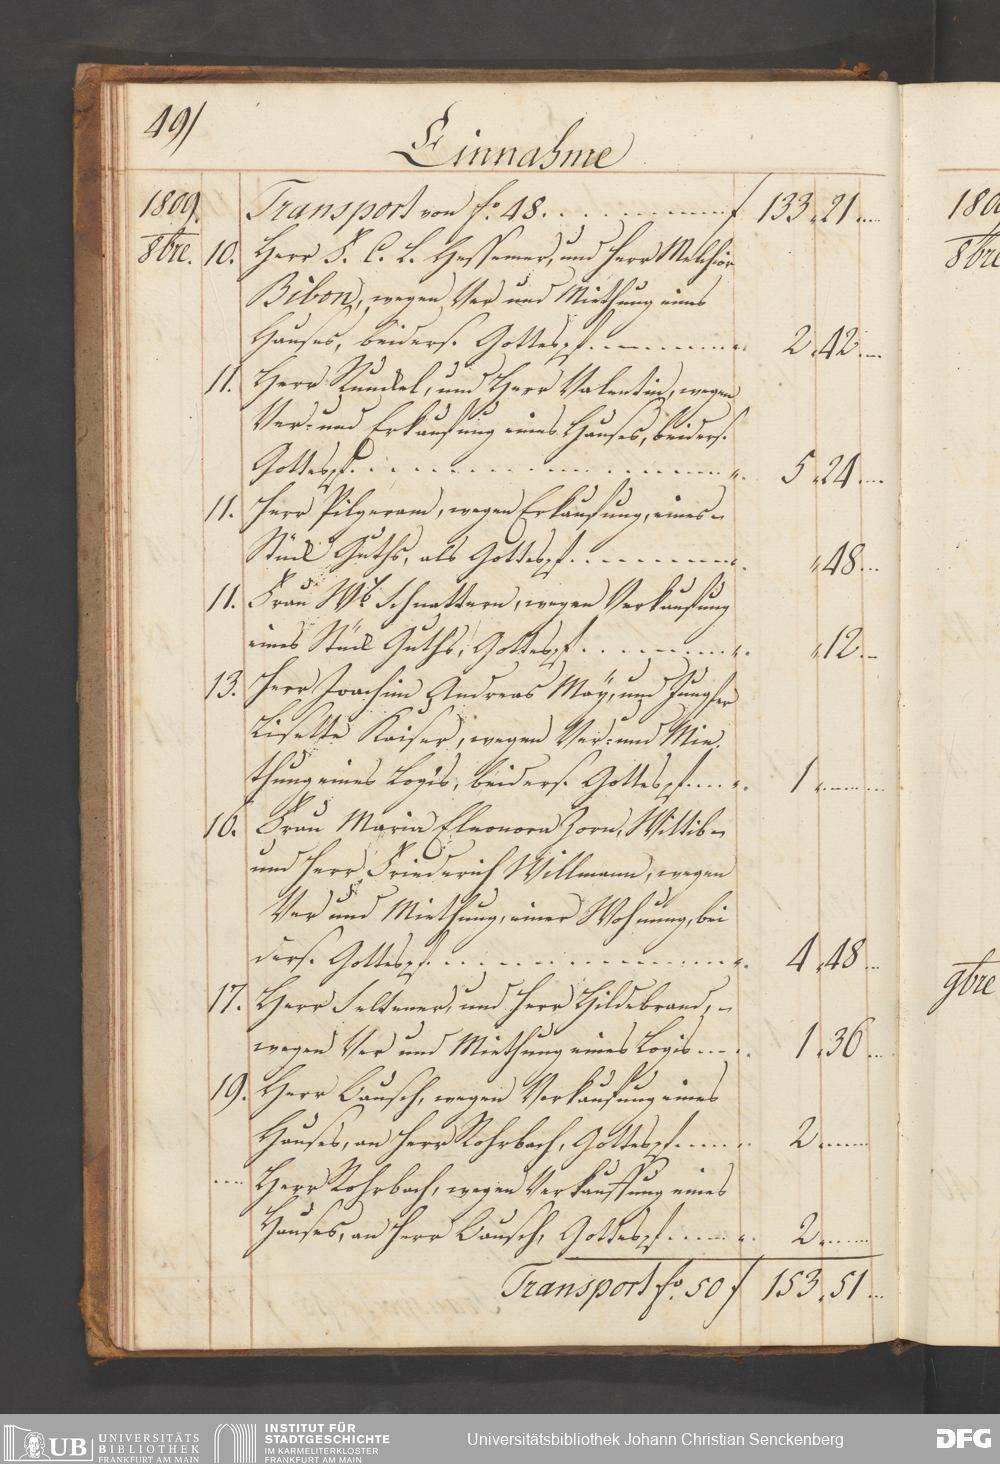 49/
Einnahme
1809. Transport von fo. 48. f 133.21.
8bre. 10. Herr F. C. L. Hessemer, und Herr Melchior
Bibon, wegen Ver und Miethung eines
Hauses, beiders. Gottespf. 2.42.
11. Herr Runckel, und Herr Valentin, wegen
Ver- und Erkaufung eines Hauses, beiders.
Gottespf. 5.24.
11. Herr Pilgeram, wegen Erkaufung, eines
Stück Guths, als Gottespf. " 48.
11. Frau Wb. Schnattern, wegen Verkaufung
eines Stück Guths, Gottespf. " 12.
13. Herr Joachim Andreas Maÿ, und Jungfer
Lisette Kaiser, wegen Ver- und Mie-
thung eines Logis, beiders. Gottespf. 1.
16. Frau Maria Eleonora Zorn, Wittib
und Herr Friederich Willmann, wegen
Ver und Miethung, einer Wohnung, bei
ders. Gottespf. 4.48.
17. Herr Feltener, und Herr Hildebrand,
wegen Ver und Miethung eines Logis 1.36.
19. Herr Bausch, wegen Verkaufung eines
Hauses, an Herr Rohrbach, Gottespf. 2.
Herr Rohrbach, wegen Verkauffung eines
Hauses, an Herr Bausch, Gottespf. 2.
Transport fo. 50 f 153.51.
180
8bre
9bre
UB UNIVERSITÄTS
BIBLIOTHEK
FRANKFURT AM MAIN
INSTITUT FÜR
STADTGESCHICHTE
IM KARMELITERKLOSTER
FRANKFURT AM MAIN
Universitätsbibliothek Johann Christian Senckenberg
DFG